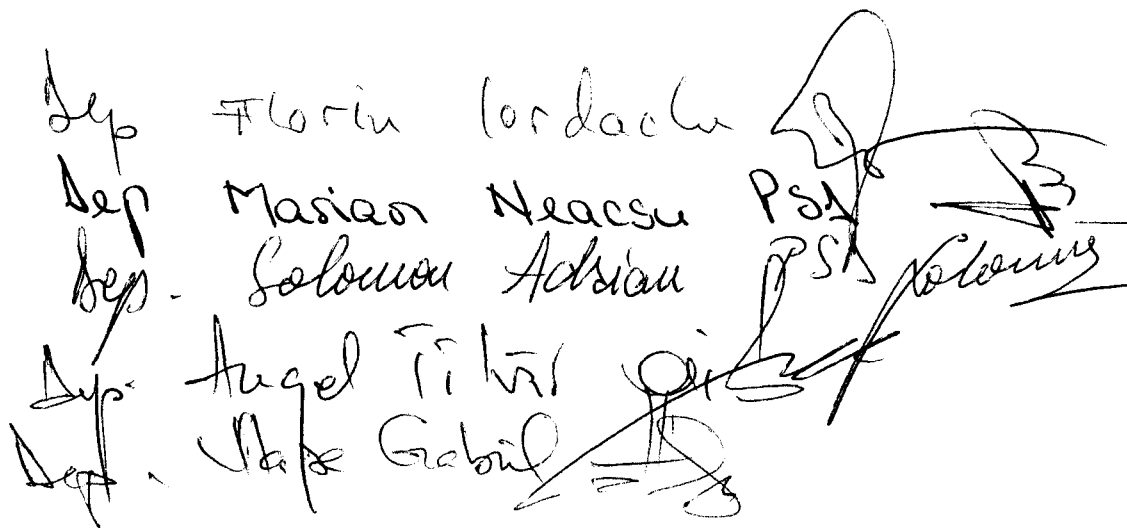 Dep Florin Iordache
Dep Marian Neacsu PSD
Dep. Solomon Adrian PSD Solomon
Dep. Angel Tîlvăr
Dep. Vlase Gabriel